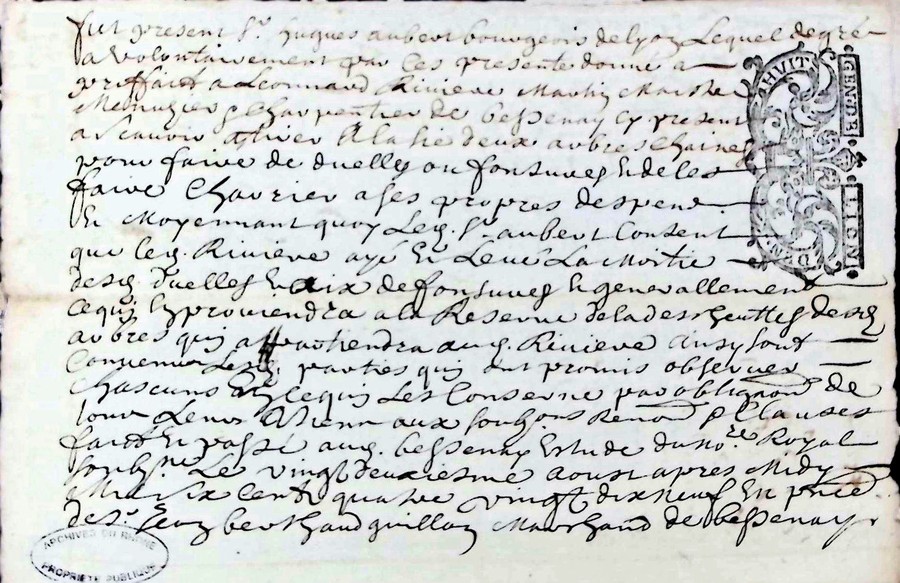 fut present Sr hugues aubert bourgeois de lyon Lequel de gré
a volontairement par Ces presente donne a
prixfaict a Leonnard Riviere Martin Maistre
Menuzier & Charpentier de bessenay Cy present
a scauoir a la sie deux arbres chaines
pour faire de duelles ou fonsures & de les
faire Charrier a ses propres despens
Et Moyennant quoy Led. Sr. aubert Consent
que led. Riviere aye Et Leve La Moitie
desd. duelles de fonsures & generallement
Ce qui En proviendra a la Reserve de la des
arbres qui appartiendra aud. Riviere ainsy sont
Convenu Lesd. parties qui ont promis observer
Chascuns En Ce qui Les Conserne par obligaon de
tous Leurs biens aux soubzons Renon & Clauses
faict Et passé aud. bessenay Estude du nore Royal
soubsne Le vingt deuxiesme aoust apres Midy
Mil Six Cents quatre vingt dix neuf En pnce
de Sr Jean berthaud Marchand de bessenay
HUIT
GEN. DE
LION
DEN
ARCHIVES DU RHONE
PROPRIETE PUBLIQUE